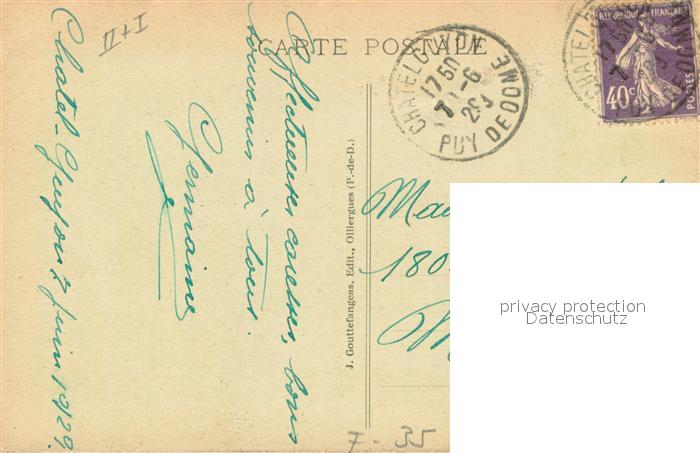 II+I
CARTE POSTALE
Chatel-Guyon 7 juin 1929
Affectueuses caresses, bons
souvenirs à tous.
Germaine
J. Gouttefangeas, Edit., Olliergues (P.-de-D.)
CHATELGUYON
17 50
7 -6
29
PUY DE DOME
REPUBLIQUE FRANÇAISE
POSTES
40c
180
privacy protection
Datenschutz
7-35